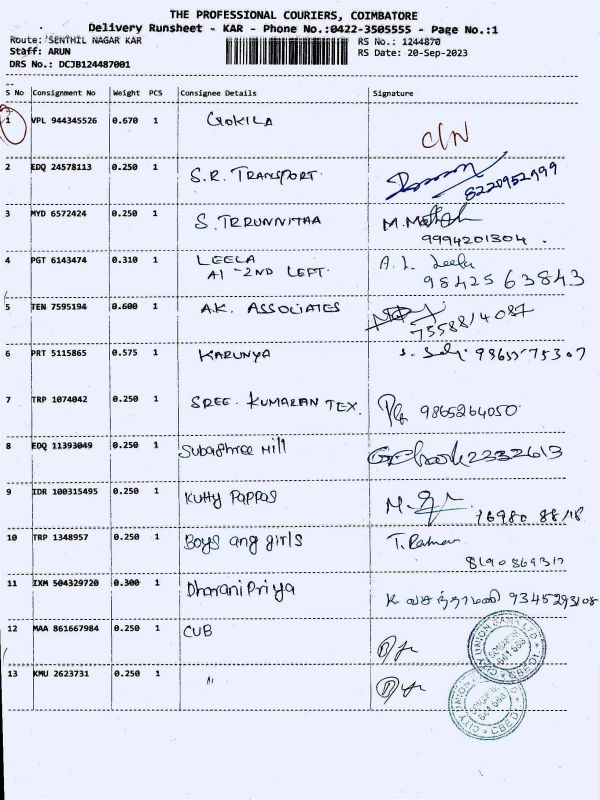 THE PROFESSIONAL COURIERS, COIMBATORE
Delivery Runsheet - KAR - Phone No.:0422-3505555 - Page No.:1
Route: SENTHIL NAGAR KAR
RS No.: 1244870
Staff: ARUN
RS Date: 20-Sep-2023
DRS No.: DCJB124487001
S No Consignment No Weight PCS Consignee Details Signature
1 VPL 944345526 0.670 1 GOKILA C/N
2 EDQ 24578113 0.250 1 S.R. TRANSPORT 8220952999
3 MYD 6572424 0.250 1 S. M.
9994201304.
4 PGT 6143474 0.310 1 LEELA A. L. Leela
A1 -2ND LEFT. 98425 63843
5 TEN 7595194 0.600 1 A.K. ASSOCIATES
7558814087
6 PRT 5115865 0.575 1 KARUNYA
7 TRP 1074042 0.250 1 SREE. KUMARAN TEX. 9865264050
8 EDQ 11393049 0.250 1 Subashree Mill 2332613
9 IDR 100315495 0.250 1 Kutty Pappas M.
76980 88118
10 TRP 1348957 0.250 1 Boys ang girls T. Raman
11 IXM 504329720 0.300 1 Dharani Priya K வசந்தாமணி 9345293108
12 MAA 861667984 0.250 1 CUB
CITY UNION BANK LTD
641 668
13 KMU 2623731 0.250 1 "